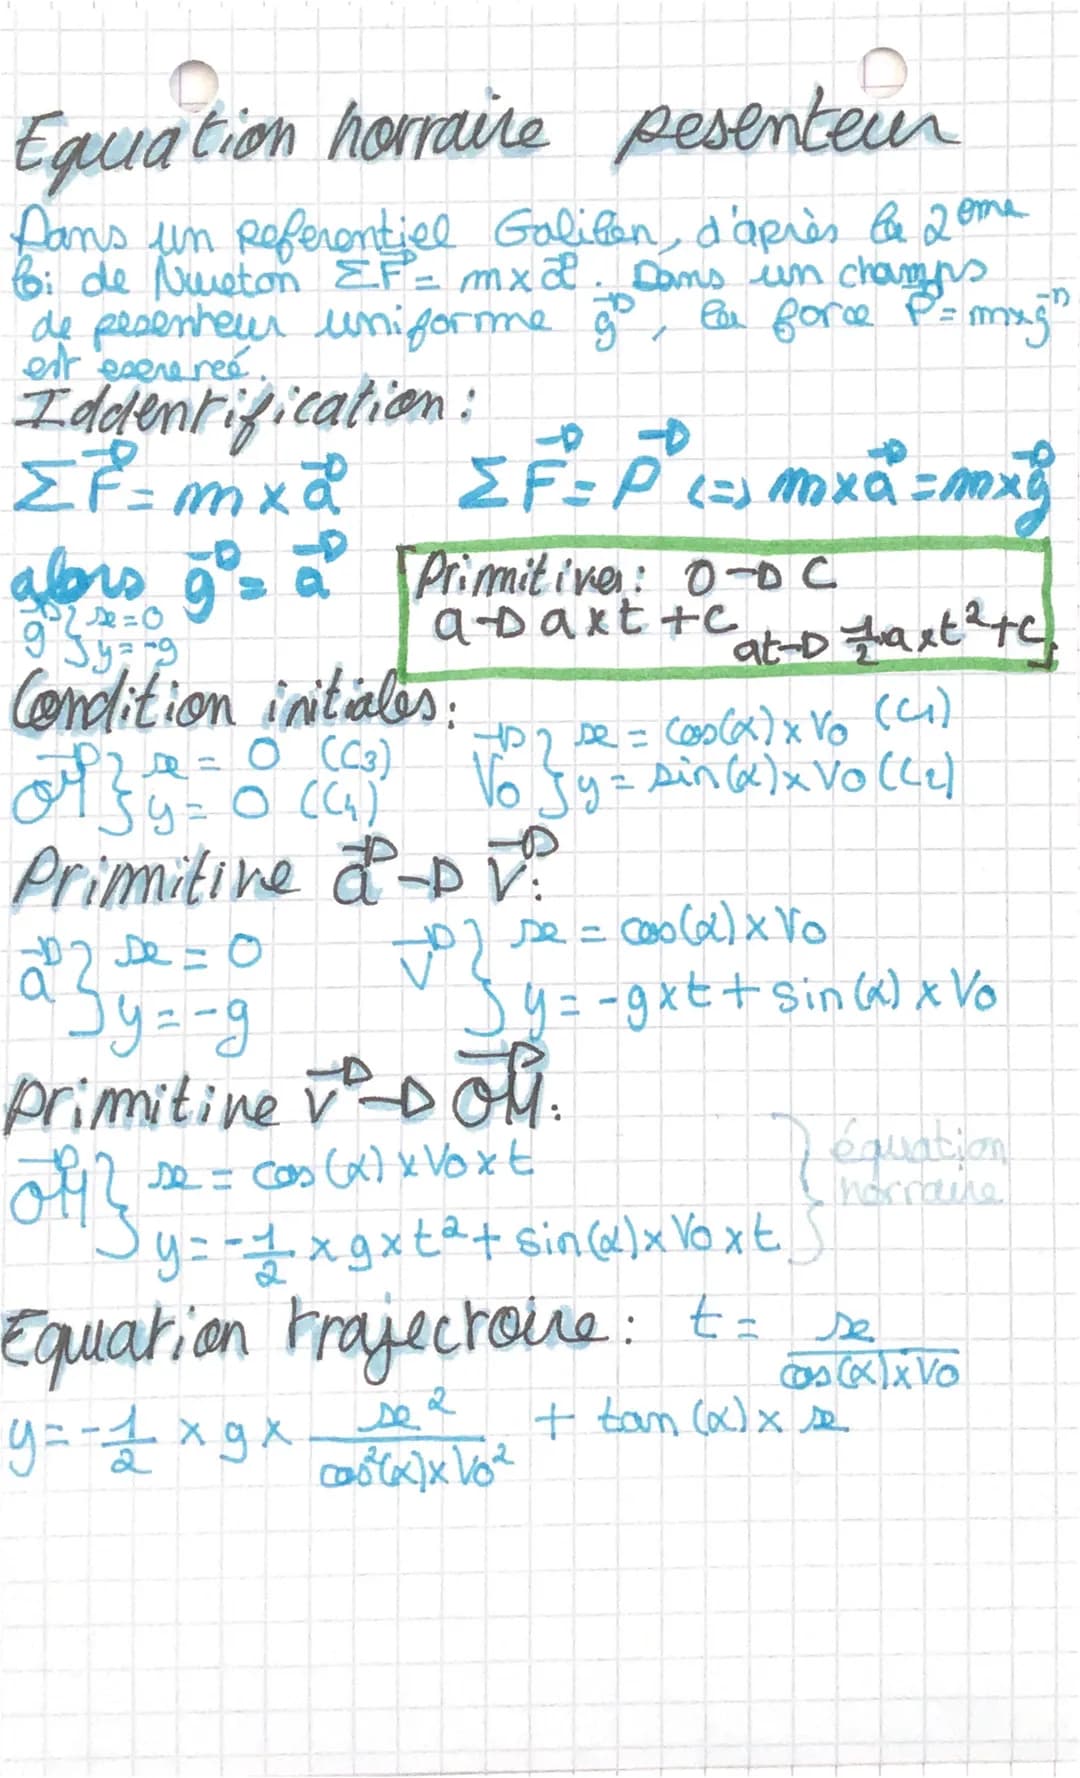 Equation horraire pesenteur
Dans un referentiel Galiléen, d'après la 2ème
loi de Newton ΣF⃗ = m x a⃗. Dans un champs
de pesenteur uniforme g⃗, la force P⃗ = m x g⃗
est exercreé.
Iddentification :
ΣF⃗ = m x a⃗ ΣF⃗ = P⃗ <=> m x a⃗ = m x g⃗
alors g⃗ = a⃗
g⃗ } x = 0
y = -g
Primitives : 0 → C
a → a x t + C
at → 1/2 a x t² + C
Condition initiales :
OM⃗ } x = 0 (C3)
y = 0 (C4)
V0⃗ } x = cos(α) x V0 (C1)
y = sin(α) x V0 (C2)
Primitive a⃗ → V⃗ :
a⃗ } x = 0
y = -g
V⃗ } x = cos(α) x V0
y = -g x t + sin(α) x V0
Primitive V⃗ → OM⃗ :
OM⃗ } x = cos(α) x V0 x t
y = -1/2 x g x t² + sin(α) x V0 x t
} équation
horraire
Equation trajectoire : t = x / cos(α) x V0
y = -1/2 x g x x² / cos²(α) x V0² + tan(α) x x